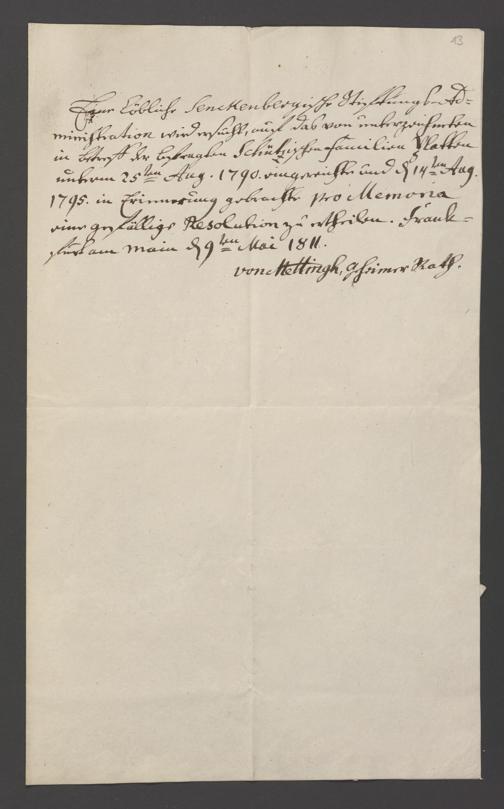 13
Eine Löbliche Senckenbergische Stiftungs-Ad-
ministration wird ersucht, auf das von unterzeichneten
in Betreff der besagten Schützischen Familien
unterm 25ten Aug. 1790. eingereichte und d 14ten Aug.
1795. in Erinnerung gebrachte pro Memoria
eine gefällige Resolution zu ertheilen. Frank-
furt am Main d 9ten Mai 1811.
von Mettingh, gheimer Rath.